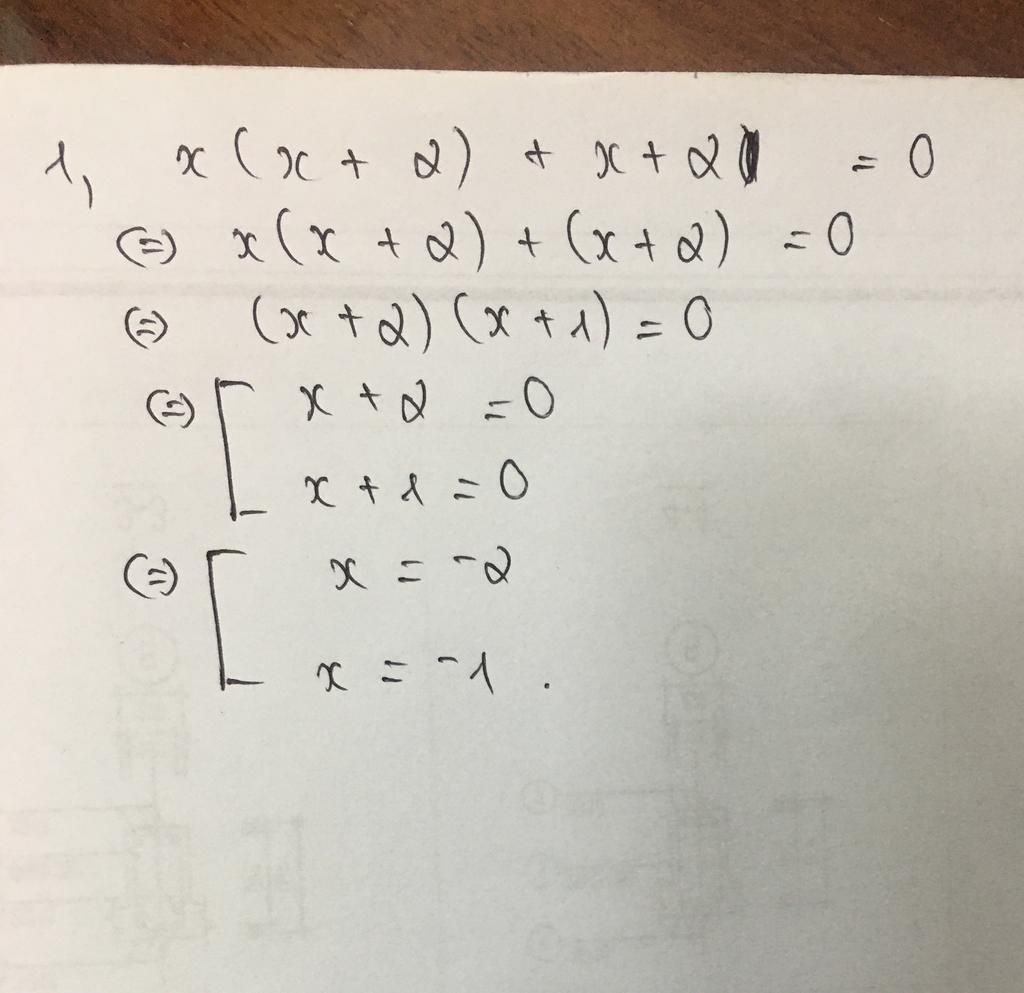 1, x(x + 2) + x + 2 = 0
(=) x(x + 2) + (x + 2) = 0
(=) (x + 2)(x + 1) = 0
(=) [ x + 2 = 0
x + 1 = 0
(=) [ x = -2
x = -1 .